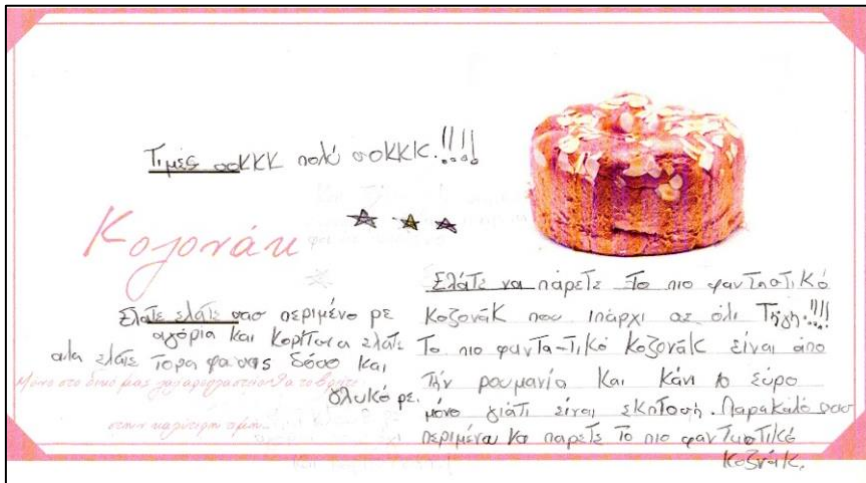 Τιμές σοΚΚΚ πολύ σοΚΚΚ.!!!!
Κοζονάκ
Ελάτε ελάτε σασ περιμένο ρε
αγόρια και Κορίτσια ελάτε
ελάτε τορα θα σας δόσο και
γλυκό ρε.
Μόνο στο δικό μας ζαχαροπλαστείο θα το βρείτε
στην καλύτερη τιμή...
Ελάτε να πάρετε το πιο φανταστικό
κοζονάκ που ιπάρχι σε όλι Τη γη.!!!!
Το πιο φαντα-τικό κοζονάκ είναι άπο
Την ρουμανία και κάνι 10 εύρο
μόνο γιάτι είναι εκπτοση. Παρακαλό σασ
περιμένω να παρετε το πιο φανταστικό
κοζνάκ.